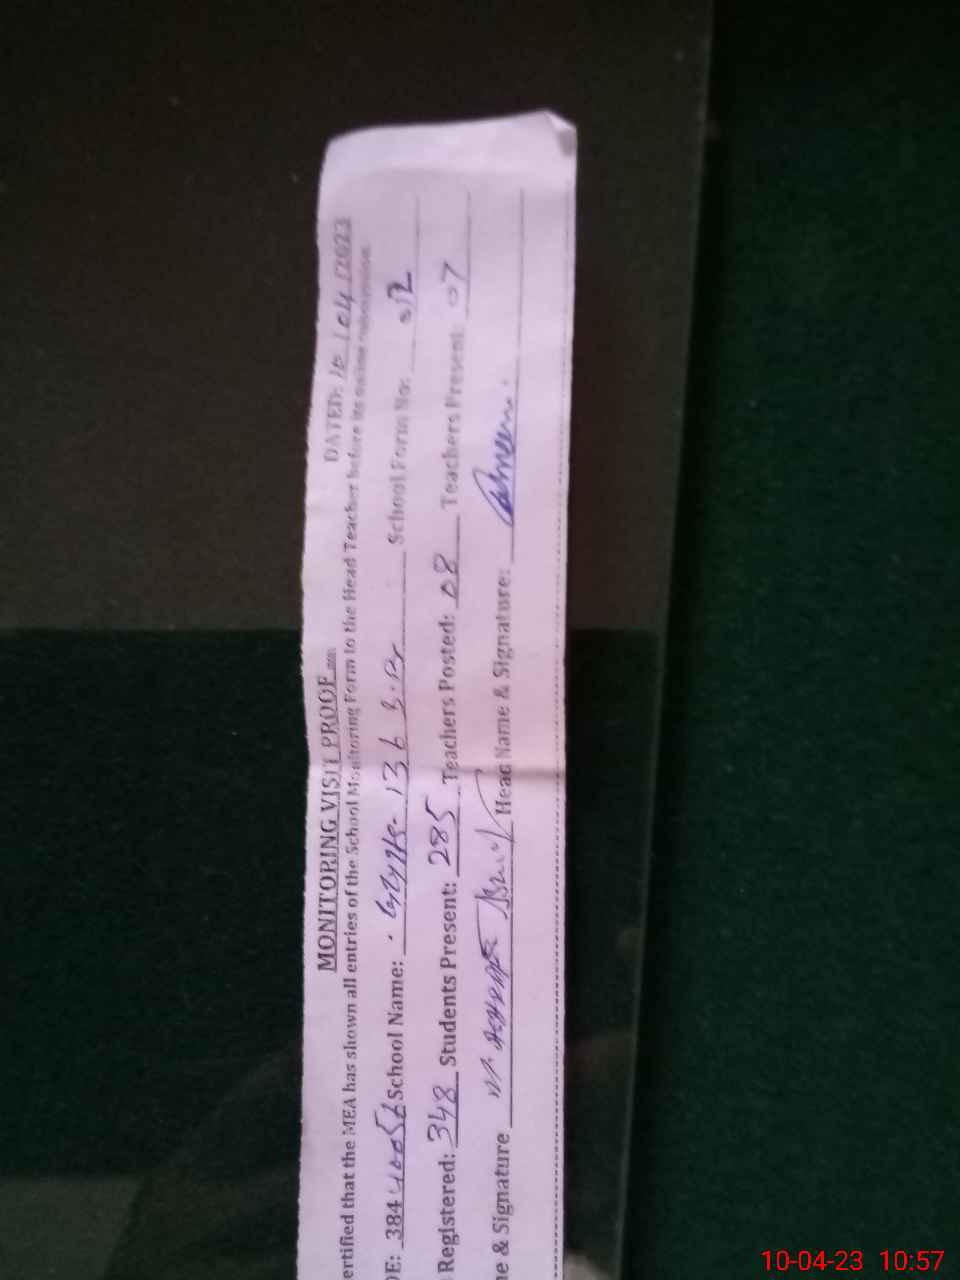 MONITORING VISIT PROOF DATED: 10/04/2023
ertified that the MEA has shown all entries of the School Monitoring Form to the Head Teacher before its online submission.
DE: 38440056 School Name: 136 School Form No: 012
Registered: 348 Students Present: 285 Teachers Posted: 08 Teachers Present: 07
e & Signature Head Name & Signature:
10-04-23 10:57